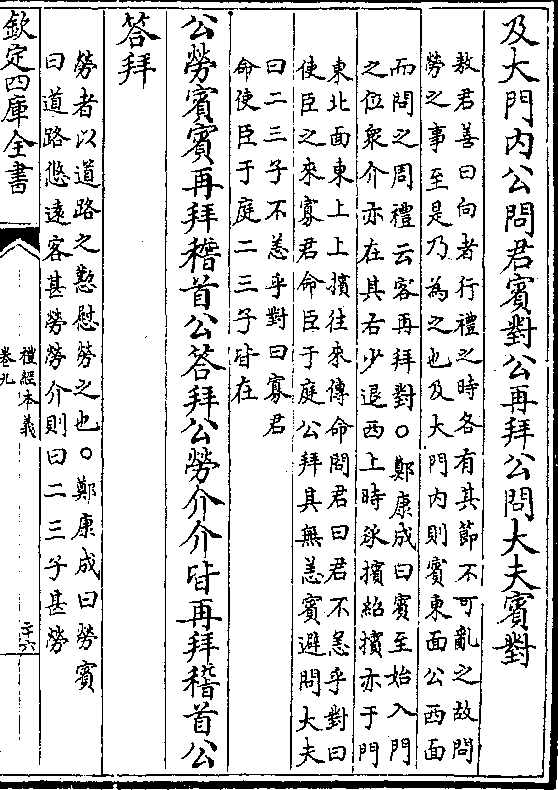 及大門内公問君賓對公再拜公問大夫賓對
敖君善曰向者行禮之時各有其節不可亂之故問
勞之事至是乃為之也及大門内則賓東面公西面
而問之周禮云客再拜對○鄭康成曰賓至始入門
之位衆介亦在其右少退西上時承擯紹擯亦于門
東北面東上上擯往來傳命問君曰君不恙乎對曰
使臣之來寡君命臣于庭公拜其無恙賓避問大夫
曰二三子不恙乎對曰寡君
命使臣于庭二三子皆在
公勞賓賓再拜稽首公答拜公勞介介皆再拜稽首公
答拜
勞者以道路之懃慰勞之也○鄭康成曰勞賓
曰道路悠遠客甚勞勞介則曰二三子甚勞
欽定四庫全書
禮經本義
卷九
二十六